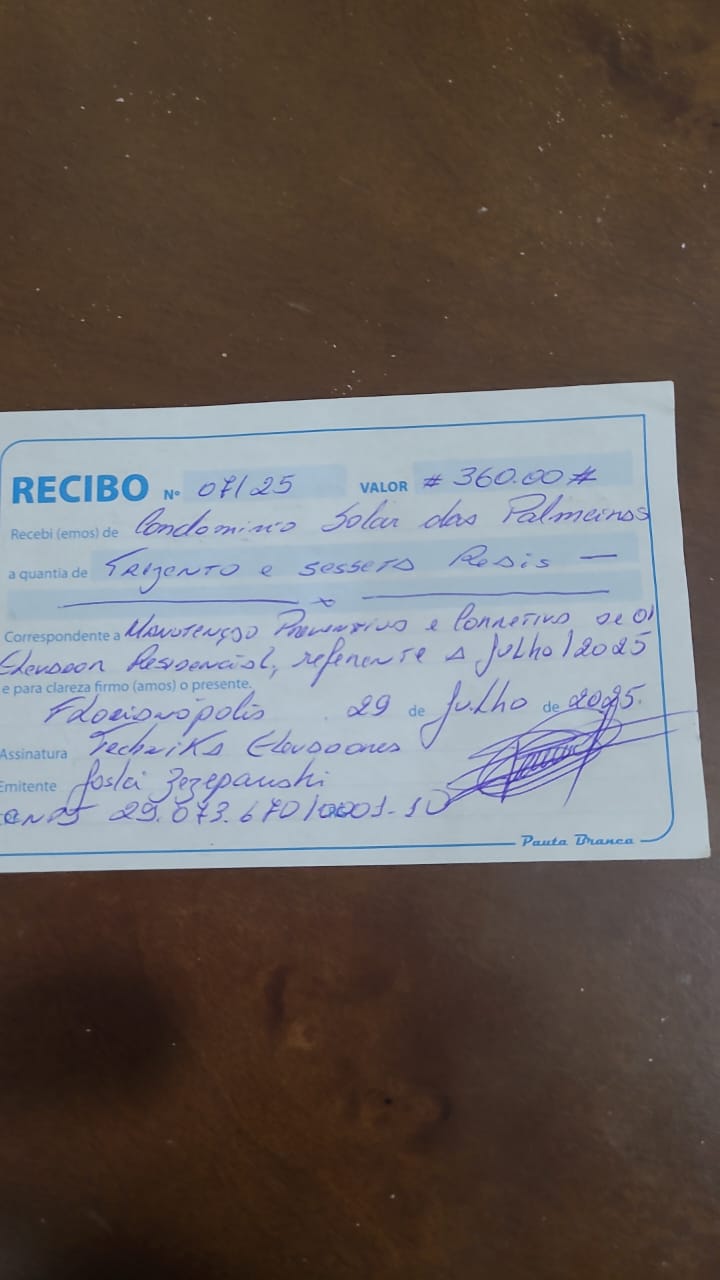 RECIBO Nº 07/25 VALOR # 360.00 #
Recebi (emos) de Condominio Solar das Palmeiras
a quantia de Trezento e sesseta Reais —
— x —
Correspondente a Manutenção Preventiva e Corretiva de 01
Elevador Residencial, referente a Julho/2025
e para clareza firmo (amos) o presente.
Florianópolis 29 de Julho de 2025.
Assinatura Techniks Elevadores
Emitente Joslei Zezepanski
CNPJ 29.073.670/0001-10
Pauta Branca